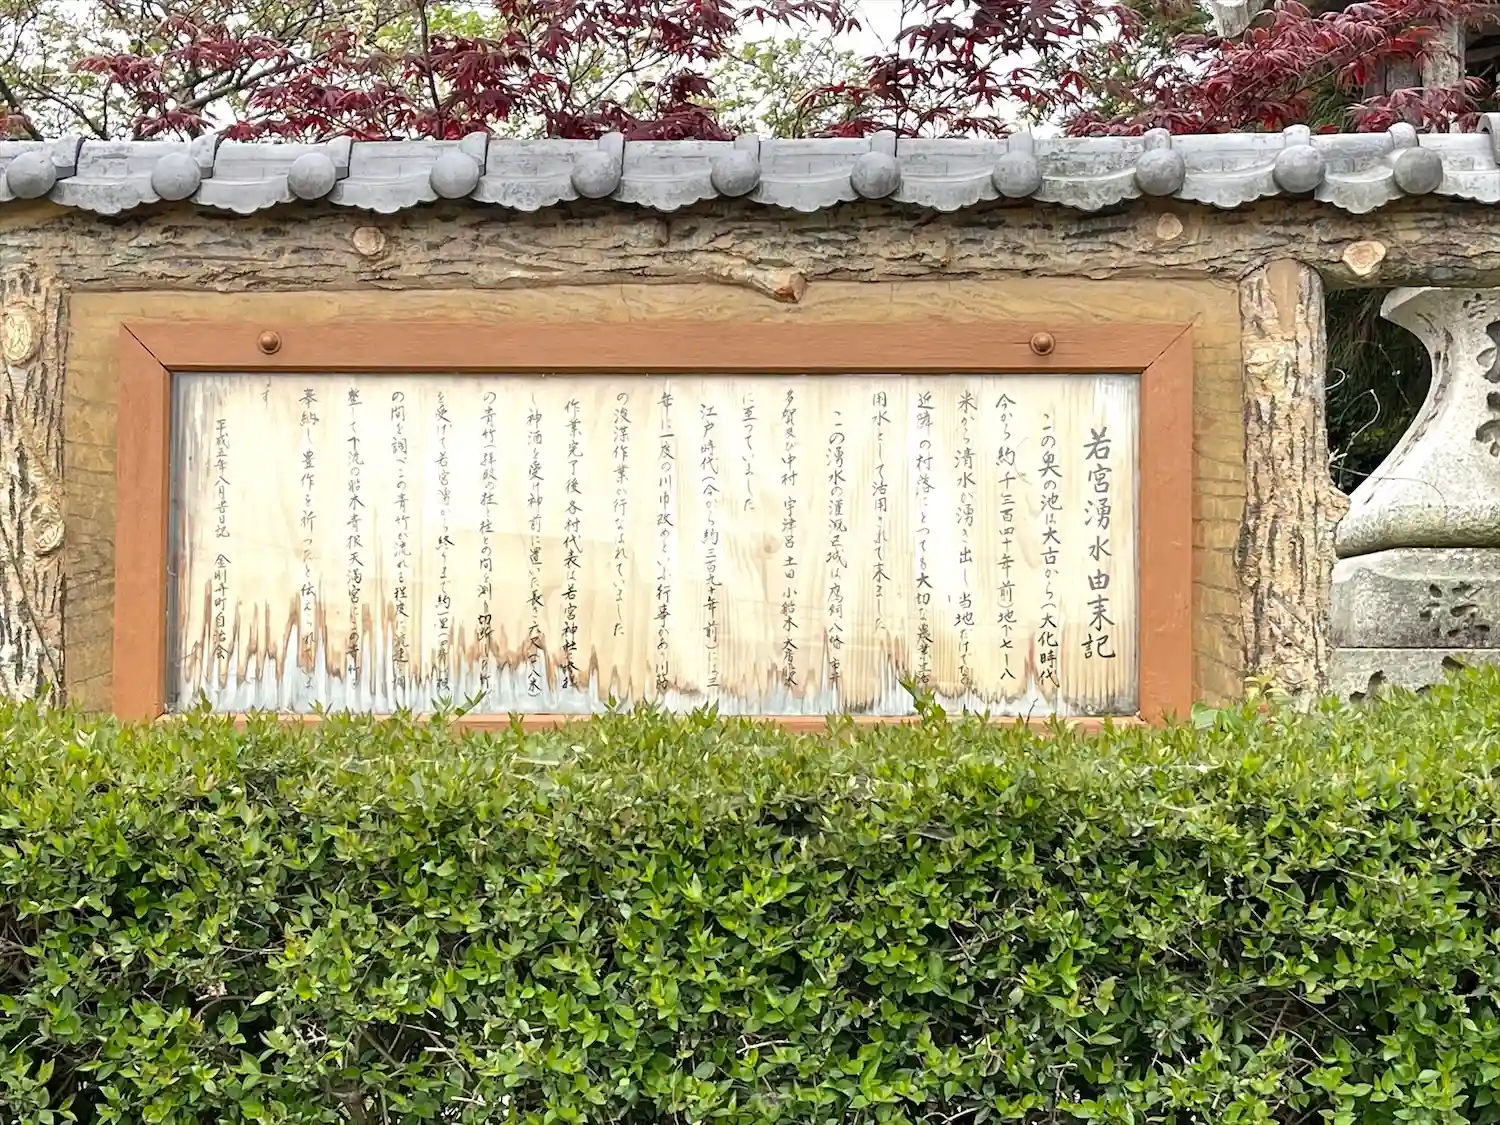 若宮湧水由来記
この奥の池は大古から(大化時代
今から約一千三百四十年前)地下七~八
米から清水が湧き出し当地だけでなく
近隣の村落にとっても大切な農業生活
用水として活用されて来ました
この湧水の灌漑区域は鷹飼八幡市井
多賀及び中村宇津呂土田小船木大房
に至っていました
江戸時代(今から約三百九十年前)には
毎に一度の川巾改めという行事があり川筋
の浚渫作業が行なわれていました
作業完了後各村代表は若宮神社に
し神酒を受け神前に置いた長さ六尺
の青竹で拝殿の柱と柱との間を測り切断しこの竹
を受けて若宮湧から終点まで約一里
の間を詞へこの青竹が流れる程度に
整して下流の船木音報天満宮にこの青竹を
奉納し豊作を祈ったと伝えられ
す
平成五年八月吉日記 金剛寺町自治会